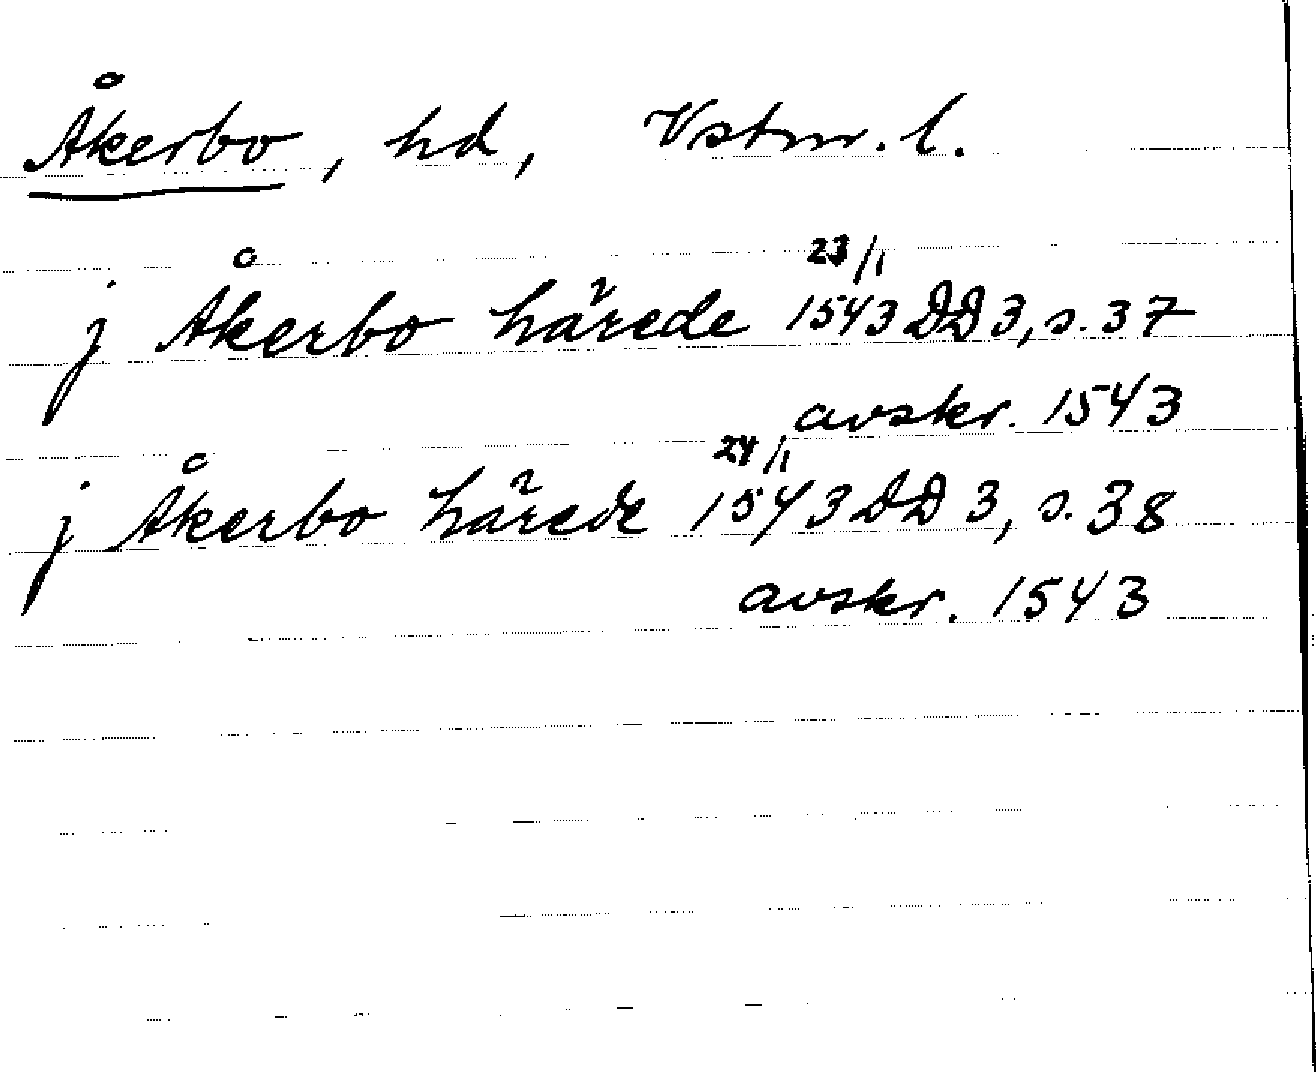 Åkerbo, hd, Vstm. l.
j Åkerbo härede 23/1 1543 DD 3, s. 37
avskr. 1543
j Åkerbo härede 24/1 1543 DD 3, s. 38
avskr. 1543